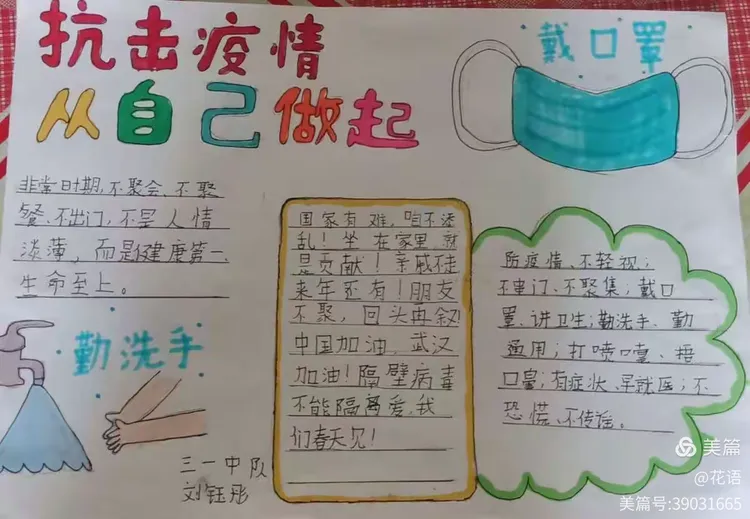 抗击疫情
从自己做起
戴口罩
非常时期,不聚会、不聚
餐、不出门,不是人情
淡薄,而是健康第一
生命至上。
勤洗手
三一中队
刘钰彤
国家有难,咱不添
乱!坐在家里就
是贡献!亲戚徒
来年还有!朋友
不聚,回头再叙
中国加油、武汉
加油!隔壁病毒
不能隔离爱,我
们春天见!
防疫情、不轻视;
不串门、不聚集;戴口
罩、讲卫生;勤洗手、勤
通用;打喷嚏、捂
口鼻;有症状、早就医;不
恐慌、不传谣。
美篇
@花语
美篇号:39031665